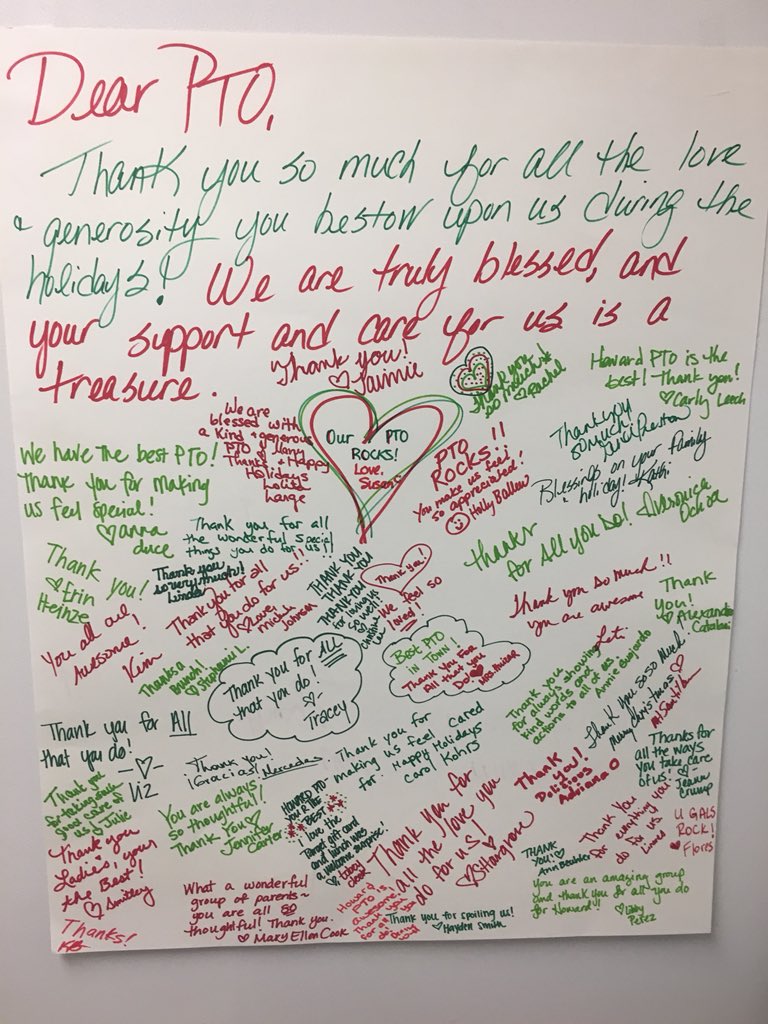 Dear PTO,
Thank you so much for all the love
& generosity you bestow upon us during the
holidays! We are truly blessed, and
your support and care for us is a
treasure.
Thank you!
♡ Jaimie
Thank you
so much!
♡ Rachel
Howard PTO is the
best! Thank you!
♡ Carly Leech
We are
blessed with
a kind + generous
PTO
Thanks + Happy
Holidays
Lolita
Large
Our PTO
ROCKS!
Love,
Susan
PTO
ROCKS!!
You make us feel
so appreciated!
Holly Ballew
Thank you
so much!
Blessings on your family
holiday! Kathi
We have the best PTO!
Thank you for making
us feel special!
♡ anna
duce
Thank you for all
the wonderful special
things you do for us!!
Thanks
for All you Do! Veronica
Ochoa
Thank you!
♡ Erin
Heinze
Thank you
so very much!
Linda
Thank you for all
that you do for us!!
♡ Love,
Johnson
THANK YOU
THANK YOU
THANK YOU
Thank you!
We feel so
loved!!
Thank you so much!!
you are awesome
Leti
Thank
you!
♡ Alexandra
You all are
Awesome!
Kim
Thanks a
Bunch!
♡ Stephanie L.
Thank you for ALL
that you do!
♡-
Tracey
BEST PTO
IN TOWN!
Thank You For
All that you
Do ♥
Thank you
for always showing
kind words and
actions to all of us
Annie Guajardo
Thank you soso much!
Merry Christmas ♡
Thank you for All
that you do!
-♡-
Liz
Thank you!
¡Gracias! Mercedes
Thank you for
making us feel cared
for. Happy Holidays
Carol Kohrs
Thanks for
all the ways
you take care
of us! ♡-
Jeann
Crump
Thank you
for taking such
good care of
us Julie
You are always
so thoughtful!
Thank You ♡
Jennifer
Carter
HOWARD PTO-
YOU R THE
BEST
I love the
Parrot gift card
and lunch was
a welcome surprise!
Thank you for
all the love you
do for us!
♡ SHargrove
Thank
you!
Adriana
Thank You
for everything you
do for us
U GALS
ROCK!
♥ Flores
Thank you
Ladies, your
the Best!
♡ Smithey
THANK
YOU! ♡
Ann
You are an amazing group
and thank you for all you do
for Howard!!
♡ Libby
Perez
What a wonderful
group of parents~
you are all so
thoughtful! Thank you.
♡ Mary Ellen Cook
Howard
PTO is
awesome.
Thank you
for all
Thank you for spoiling us!
♡ Hayden Smith
Thanks!
KB